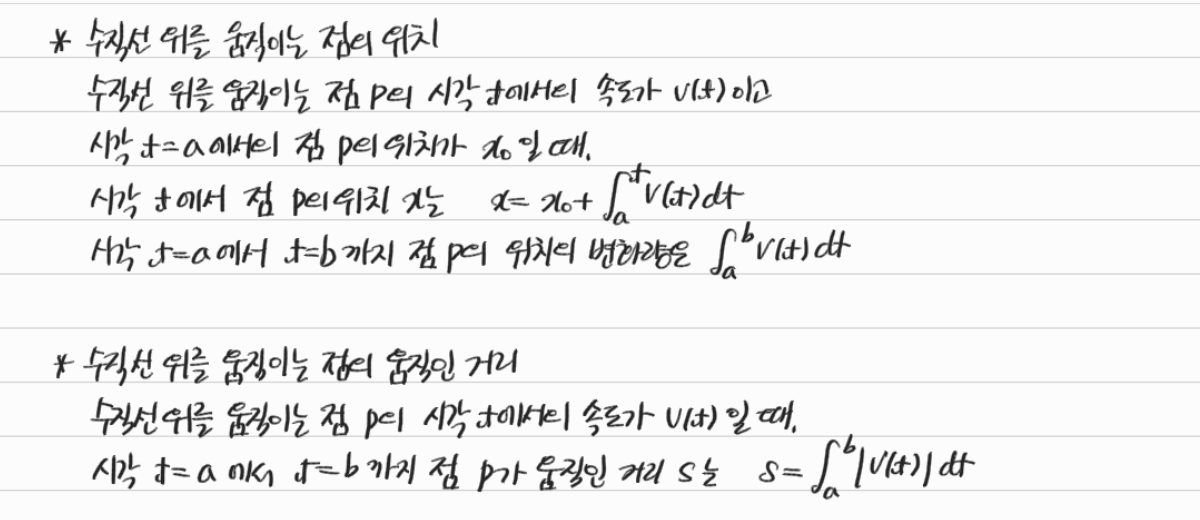 * 수직선 위를 움직이는 점의 위치
수직선 위를 움직이는 점 P의 시각 t에서의 속도가 v(t)이고
시각 t=a에서의 점 P의 위치가 x₀일 때,
시각 t에서 점 P의 위치 x는 x= x₀+∫ₐᵗ v(t)dt
시각 t=a에서 t=b까지 점 P의 위치의 변화량은 ∫ₐᵇ v(t)dt
* 수직선 위를 움직이는 점의 움직인 거리
수직선 위를 움직이는 점 P의 시각 t에서의 속도가 v(t)일 때,
시각 t=a에서 t=b까지 점 P가 움직인 거리 s는 s=∫ₐᵇ|v(t)|dt